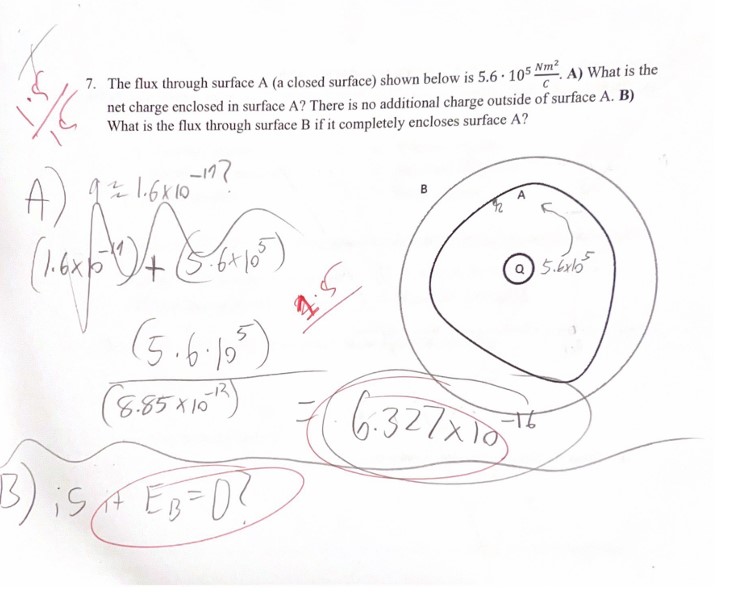 7. The flux through surface A (a closed surface) shown below is 5.6 · 10⁵ Nm²/C. A) What is the
net charge enclosed in surface A? There is no additional charge outside of surface A. B)
What is the flux through surface B if it completely encloses surface A?
1.5
A) q ≈ 1.6x10⁻¹⁹?
(1.6x10⁻¹⁹) + (5.6x10⁵)
B
A
Q 5.6x10⁵
1.5
(5.6·10⁵)
(8.85x10⁻¹²) = 6.327x10⁻¹⁶
B) is it E_B=0?